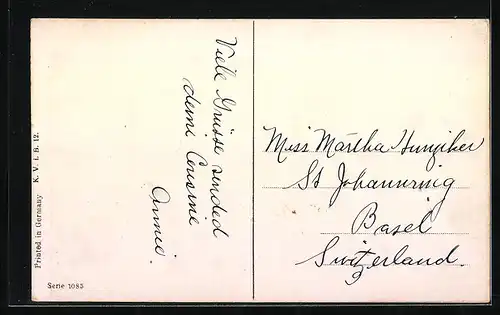 Viele Grüsse sended
deine Cousine
Annie.
Miss Martha Hunziker
St Johannring
Basel
Switzerland.
Printed in Germany K. V. i. B. 12.
Serie 1085